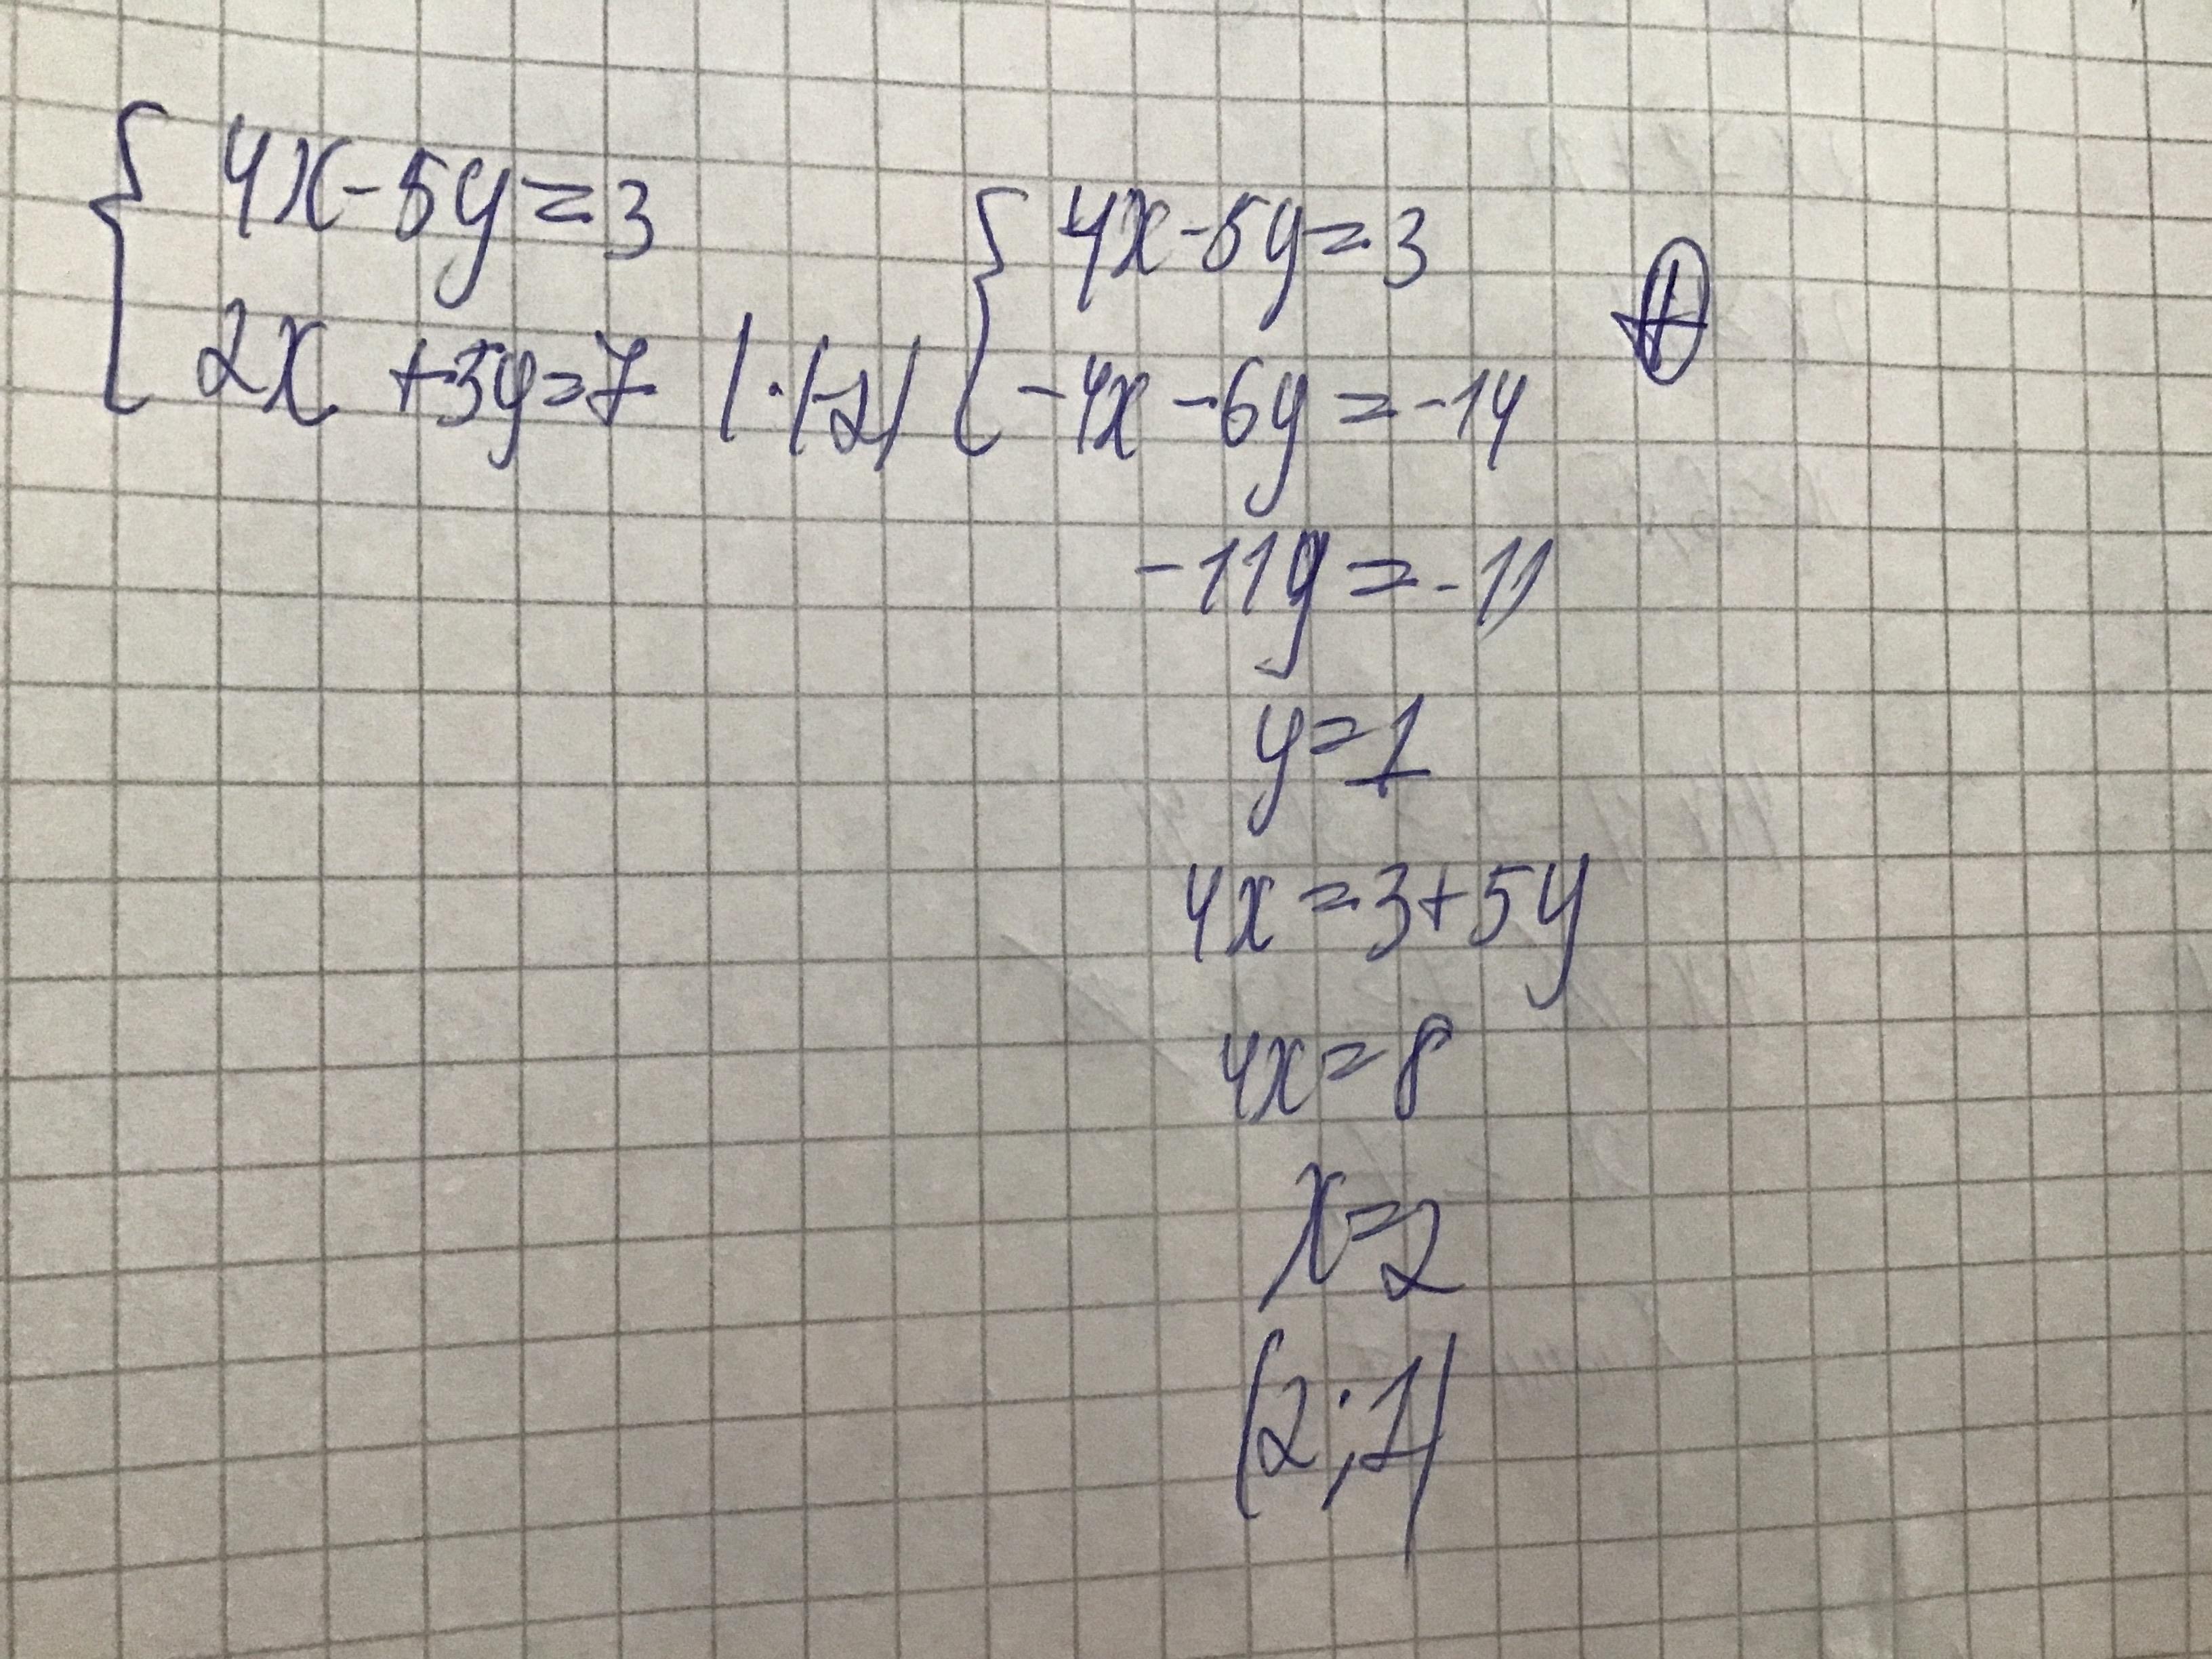 { 4x-5y=3
2x +3y=7 |·(-2)
{ 4x-5y=3 ⊕
-4x-6y=-14
-11y=-11
y=1
4x=3+5y
4x=8
x=2
(2;1)